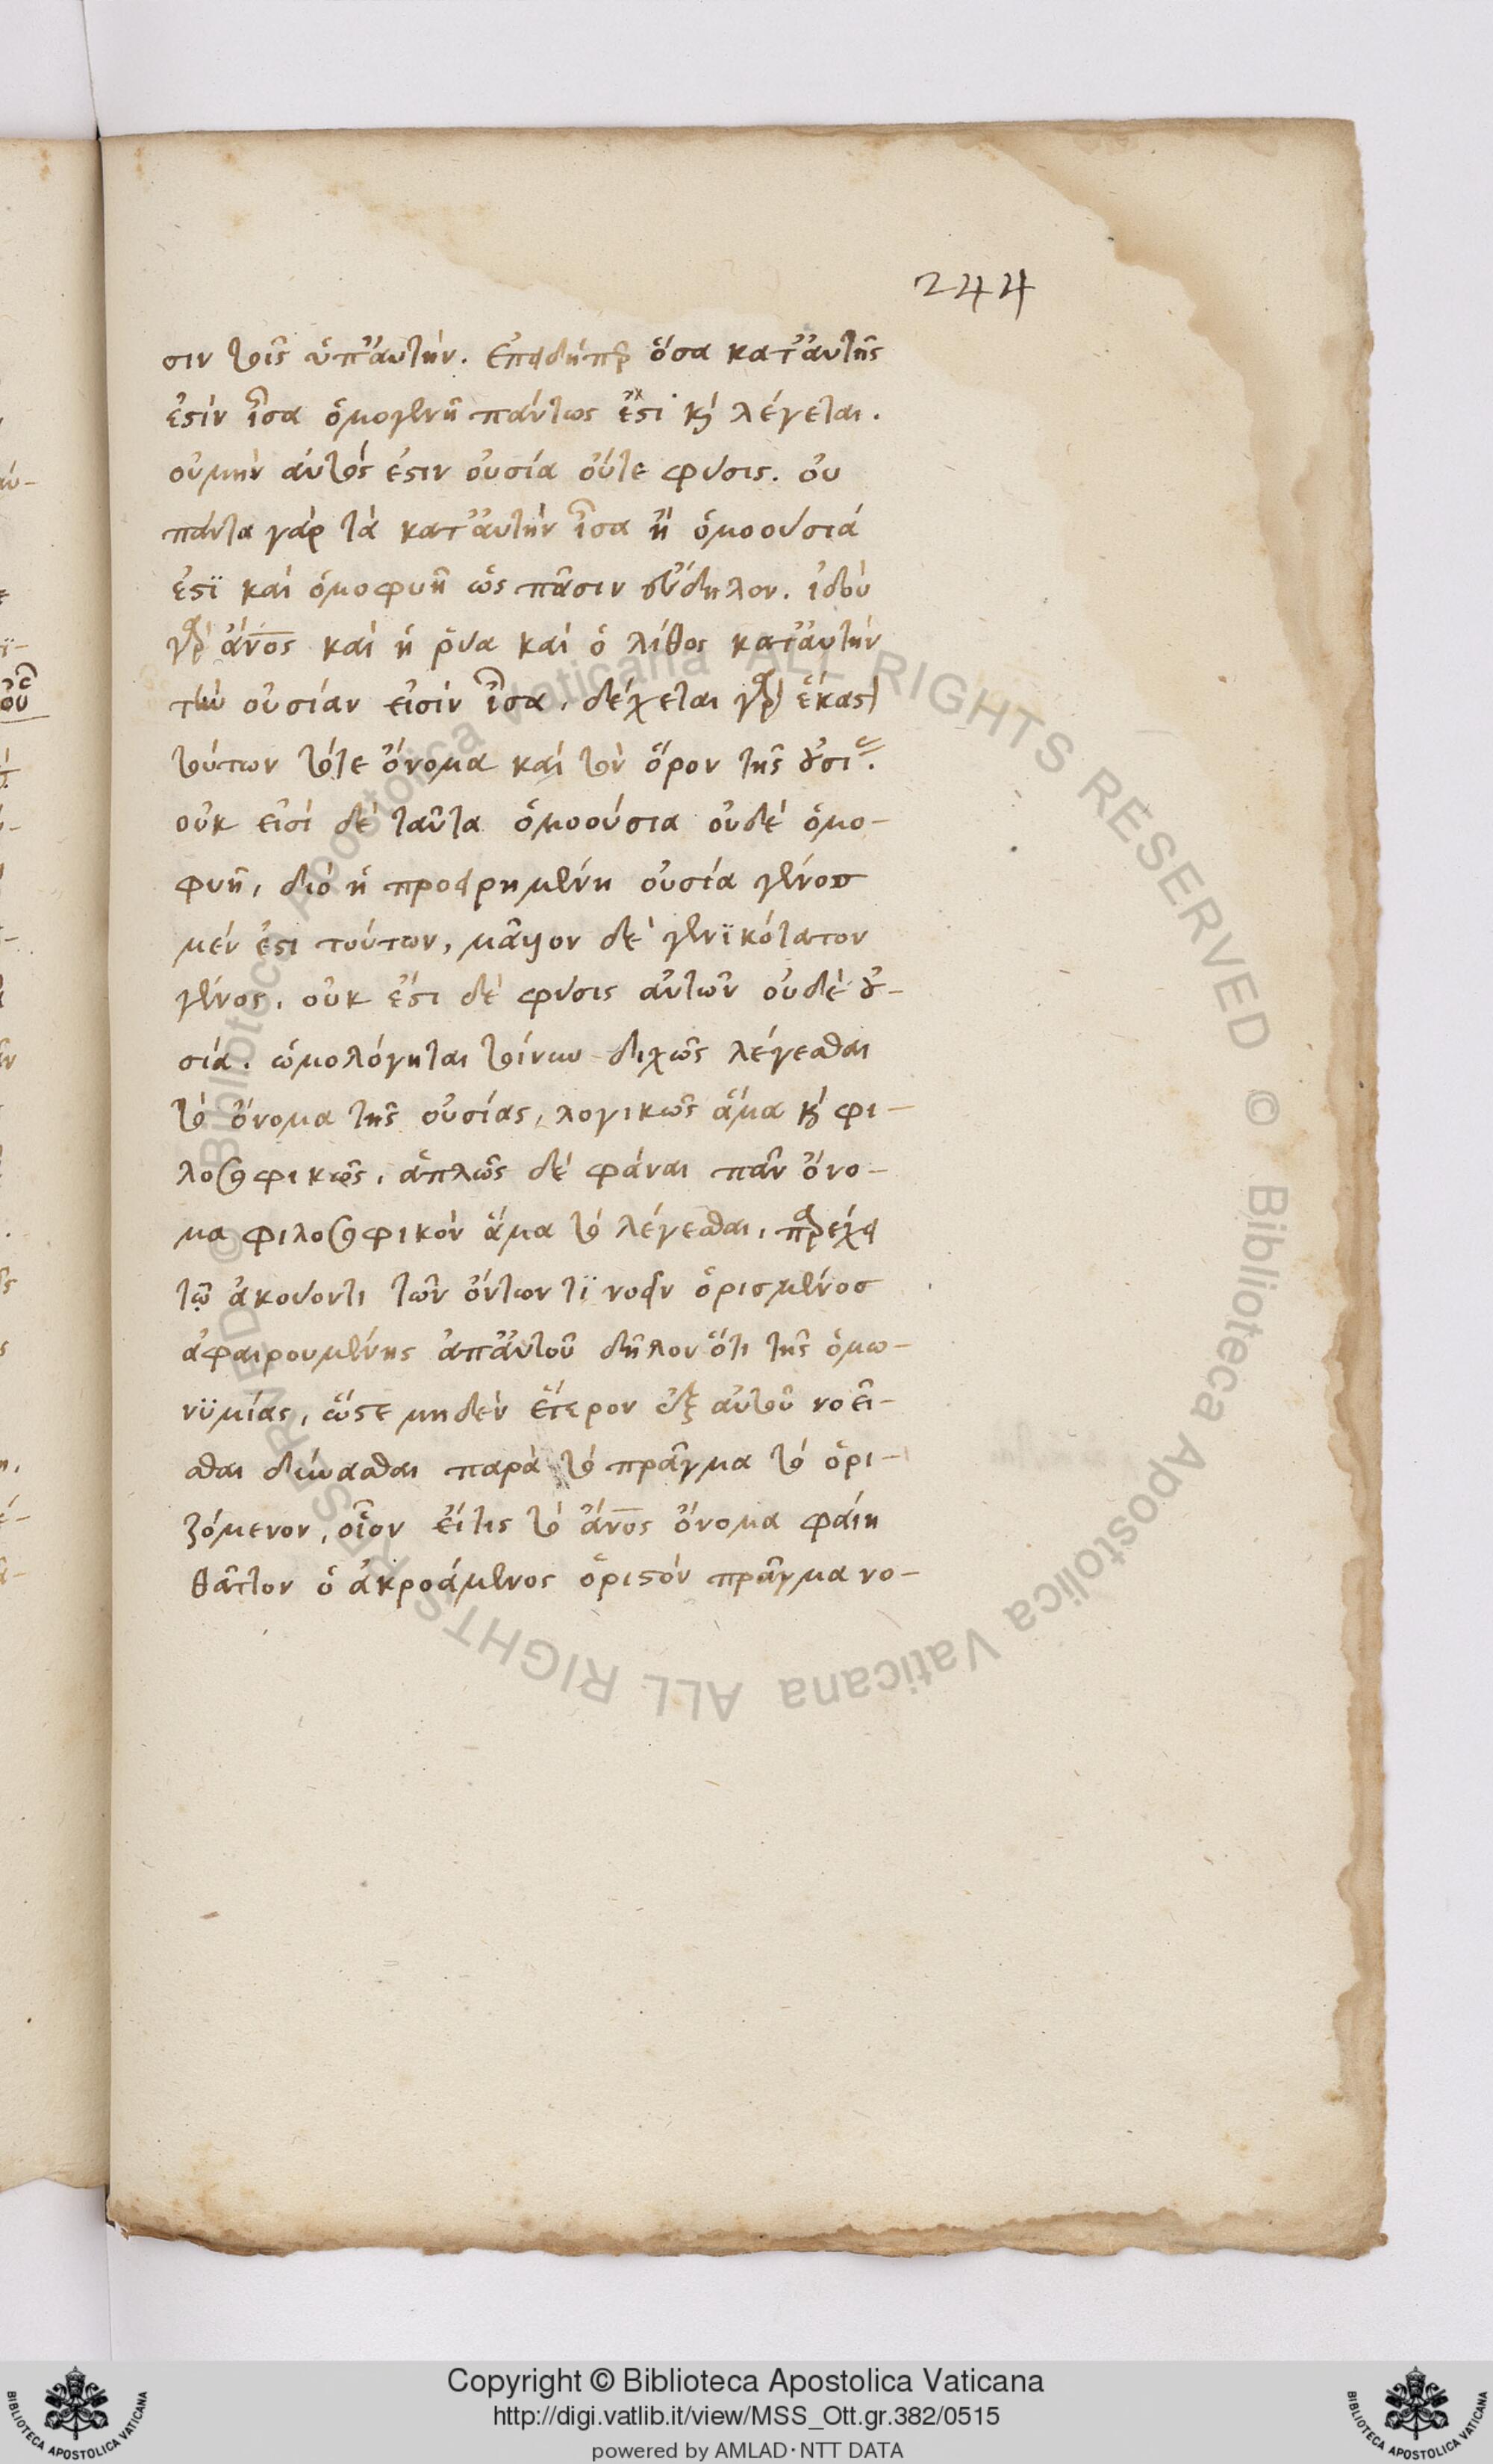 244
σιν τοῖς ὑπ' αὐτήν. ἐπειδήπερ ὅσα κατ' αὐτῆς
ἐστὶν ἶσα ὁμογενῆ πάντως ἐστὶ καὶ λέγεται.
οὐ μὴν αὐτός ἐστιν οὐσία οὔτε φύσις. οὐ
πάντα γὰρ τὰ κατ' αὐτὴν ἶσα ἢ ὁμοούσιά
ἐστϊ καὶ ὁμοφυῆ ὡς πᾶσιν εὔδηλον. ἰδοὺ
γὰρ ἄνος καὶ ἡ ῥῖνα καὶ ὁ λίθος κατ' αὐτὴν
τὴν οὐσίαν εἰσὶν ἶσα, δέχεται γὰρ ἕκαστον
τούτων τότε ὄνομα καὶ τὸν ὅρον τῆς οὐσίας.
οὐκ εἰσὶ δὲ ταῦτα ὁμοούσια οὐδὲ ὁμο-
φυῆ, διὸ ἡ προειρημένη οὐσία γένος
μέν ἐστι τούτων, μᾶλλον δὲ γενϊκότατον
γένος, οὐκ ἔστι δὲ φύσις αὐτῶν οὐδὲ οὐ-
σία. ὡμολόγηται τοίνυν διχῶς λέγεσθαι
τὸ ὄνομα τῆς οὐσίας, λογικῶς ἅμα καὶ φι-
λοσοφικῶς, ἁπλῶς δὲ φάναι πᾶν ὄνο-
μα φιλοσοφικὸν ἅμα τὸ λέγεσθαι, παρέχει
τῷ ἀκούοντι τῶν ὄντων τϊ νοεῖν ὁρισμένος
ἀφαιρουμένης ἀπ' αὐτοῦ δῆλον ὅτι τῆς ὁμω-
νϋμίας, ὥστε μηδὲν ἕτερον ἐξ αὐτοῦ νοεῖ-
σθαι δύνασθαι παρὰ τὸ πρᾶγμα τὸ ὁρι-
ζόμενον, οἷον εἴ τις τὸ ἄνος ὄνομα φαίη
θᾶττον ὁ ἀκροάμενος ὁριστὸν πρᾶγμα νο-
Copyright © Biblioteca Apostolica Vaticana
http://digi.vatlib.it/view/MSS_Ott.gr.382/0515
powered by AMLAD·NTT DATA